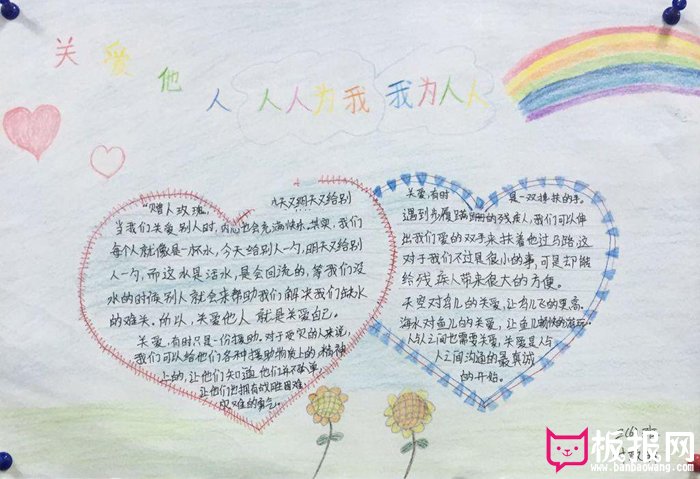 关爱他人 人人为我 我为人人
“赠人玫瑰,
明天又给别
当我们关爱别人时,内心也会充满快乐,其实,我们
每个人就像是一杯水,今天给别人一勺,明天又给别
人一勺,而这水是活水,是会回流的,等我们没
水的时候别人就会来帮助我们解决我们缺水
的难关。所以,关爱他人就是关爱自己。
关爱,有时只是一份援助。对于受灾的人来说,
我们可以给他们各种援助物质上的精神
上的,让他们知道他们并不孤单,
让他们也拥有战胜困难
灾难的勇气。
关爱,有时
是一双搀扶的手。
遇到步履蹒跚的残疾人,我们可以伸
出我们爱的双手来扶着他过马路,这
对于我们不过是很小的事,可是却能
给残疾人带来很大的方便。
天空对鸟儿的关爱,让鸟儿飞的更高。
海水对鱼儿的关爱,让鱼儿畅快的游玩。
人与人之间也需要关爱,关爱是人与
人之间沟通的最真诚
的开始。
板报网
www.banbaowang.com